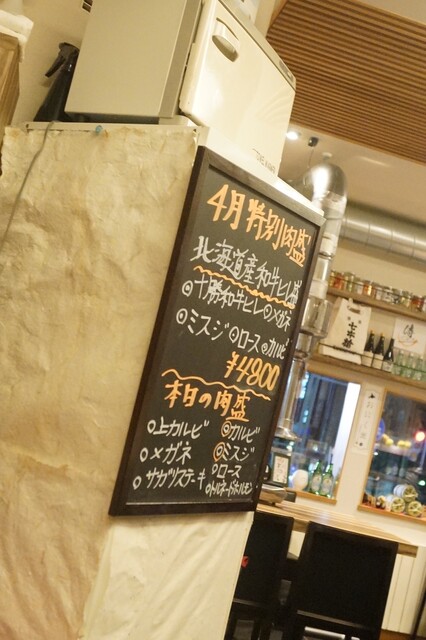 4月特別肉盛
北海道産和牛ヒレ盛
◎十勝和牛ヒレ◎メガネ
◎ミスジ◎ロース◎カルビ
¥4800
本日の肉盛
○上カルビ ◎カルビ
○メガネ ◎ミスジ
○サガリステーキ ○ロース
○トルネードホルモン